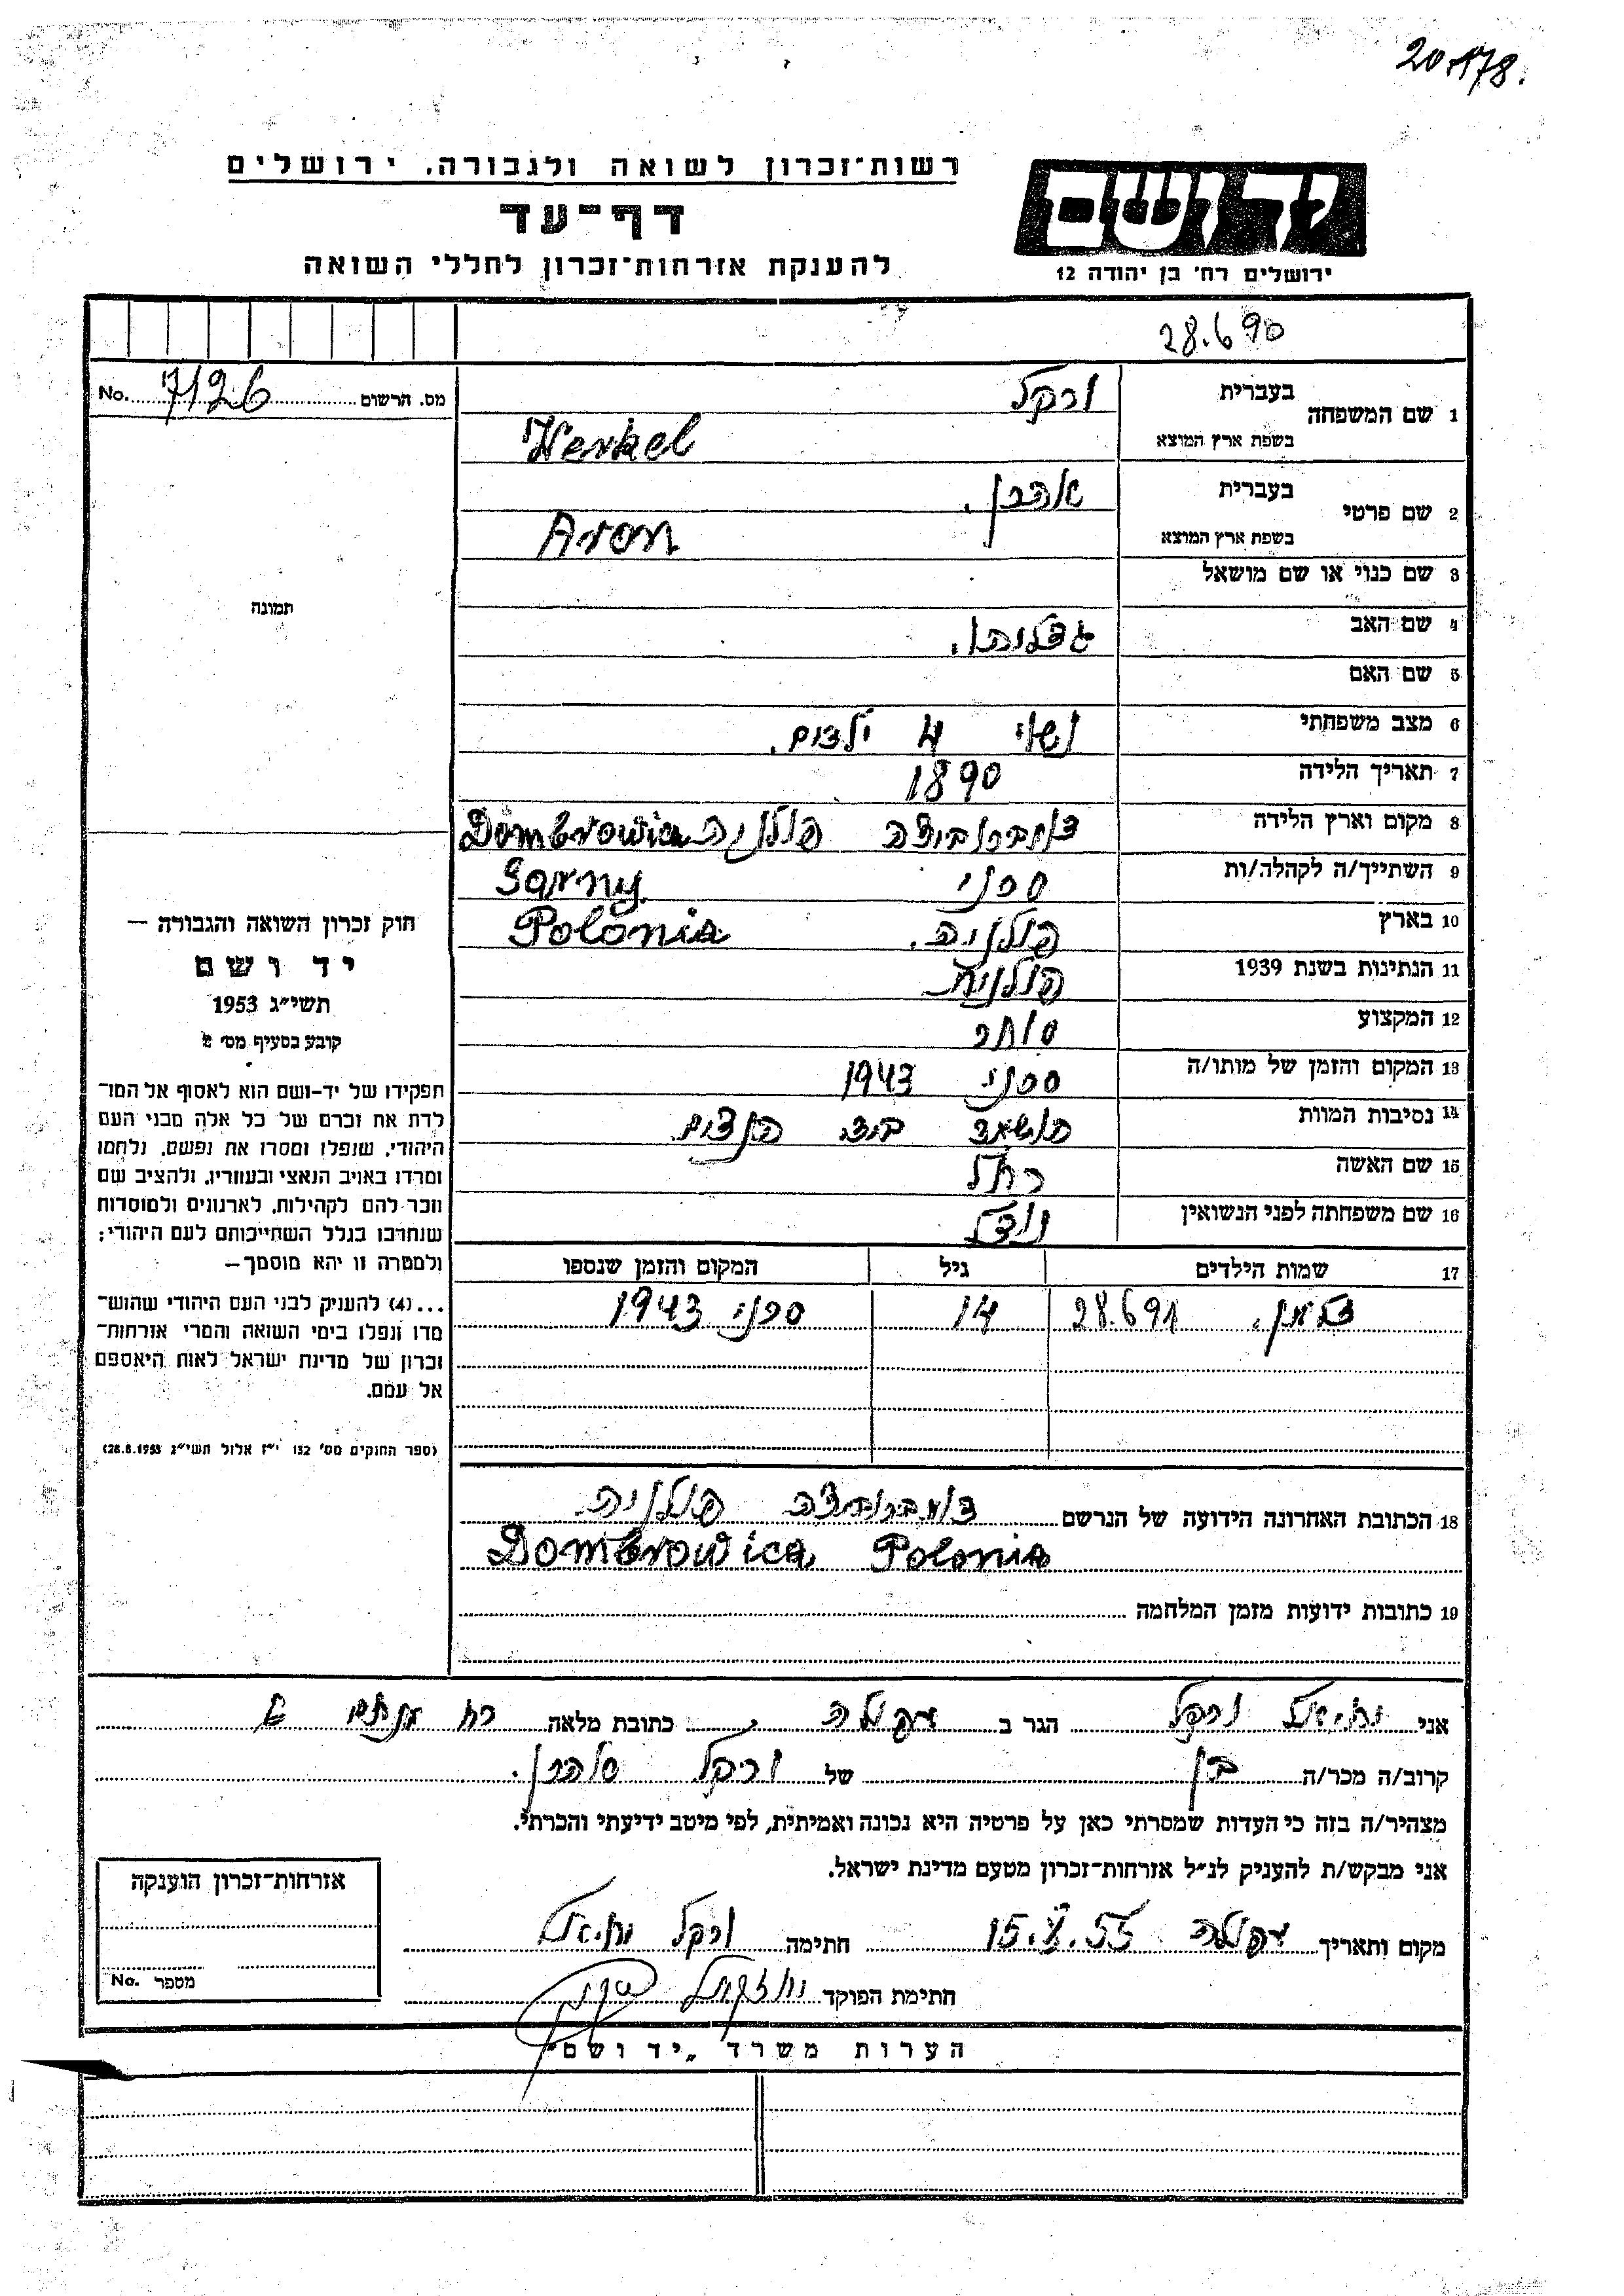 20178.
רשות־זכרון לשואה ולגבורה. ירושלים
יד ושם
דף־עד
להענקת אזרחות־זכרון לחללי השואה
ירושלים רח' בן יהודה 12
28.6 90
No. 7126 מס. הרשום
1 שם המשפחה בעברית ורקל
בשפת ארץ המוצא Werkel
2 שם פרטי בעברית אהרן.
בשפת ארץ המוצא Aron
3 שם כנוי או שם מושאל
תמונה
4 שם האב
5 שם האם
6 מצב משפחתי נשוי 4 ילדים.
7 תאריך הלידה 1890
8 מקום וארץ הלידה דומברוביצה פולניה Dombrowica
9 השתייך/ה לקהלה/ות סרני Sarny
10 בארץ פולניה. Polonia
11 הנתינות בשנת 1939 פולנית
12 המקצוע סוחר
13 המקום והזמן של מותו/ה סרני 1943
14 נסיבות המוות הושמד בידי הנאצים
15 שם האשה רחל
16 שם משפחתה לפני הנשואין
17 שמות הילדים גיל המקום והזמן שנספו
28.691 14 סרני 1943
חוק זכרון השואה והגבורה —
יד ושם
תשי״ג 1953
קובע בסעיף מס' 2
תפקידו של יד-ושם הוא לאסוף אל המו־
לדת את זכרם של כל אלה מבני העם
היהודי, שנפלו ומסרו את נפשם, נלחמו
ומרדו באויב הנאצי ובעוזריו, ולהציב שם
וזכר להם לקהילות, לארגונים ולמוסדות
שנחרבו בגלל השתייכותם לעם היהודי;
ולמטרה זו יהא מוסמך—
...(4) להעניק לבני העם היהודי שהוש־
מדו ונפלו בימי השואה והמרי אזרחות־
זכרון של מדינת ישראל לאות היאספם
אל עמם.
(ספר החוקים מס' 132 י״ז אלול תשי״ג 28.8.1953)
18 הכתובת האחרונה הידועה של הנרשם דומברוביצה פולניה
Dombrowica Polonia
19 כתובות ידועות מזמן המלחמה
אני ורקל הגר ב עפולה כתובת מלאה רח
קרוב/ה מכר/ה בן של ורקל אהרן.
מצהיר/ה בזה כי העדות שמסרתי כאן על פרטיה היא נכונה ואמיתית, לפי מיטב ידיעתי והכרתי.
אני מבקש/ת להעניק לנ״ל אזרחות־זכרון מטעם מדינת ישראל.
מקום ותאריך עפולה 15.X.55 חתימה ורקל
חתימת הפוקד
אזרחות־זכרון הוענקה
No. מספר
הערות משרד „יד ושם״